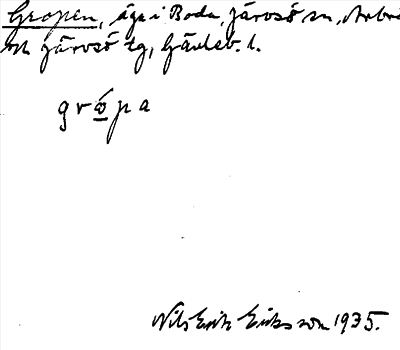 Gropen, äga i Boda, Järvsö sn, Arbrå
och Järvsö tg, Gävleb. l.
grọ́pa
Nils Erik Eriksson 1935.